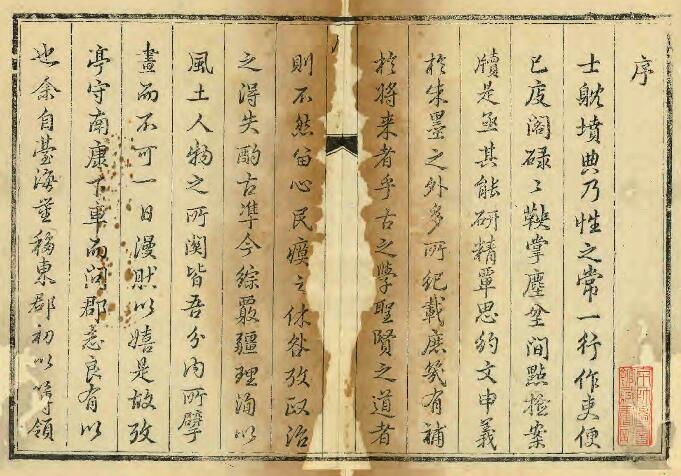 序
士躭墳典乃性之常一行作吏便
已庋閣碌〻鞅掌塵坌間點撿案
牘是亟其能研精覃思約文申義
於朱墨之外多所紀載庶幾有補
於將来者乎古之學聖賢之道者
則不然留心民瘼之休咎攷政治
之得失酌古準今綜覈疆理洵以
風土人物之所関皆吾分内所擘
畫而不可一日漫然以嬉是故攷
亭守南康下車而問郡志良有以
也余自臺海量移東郡初以簿領